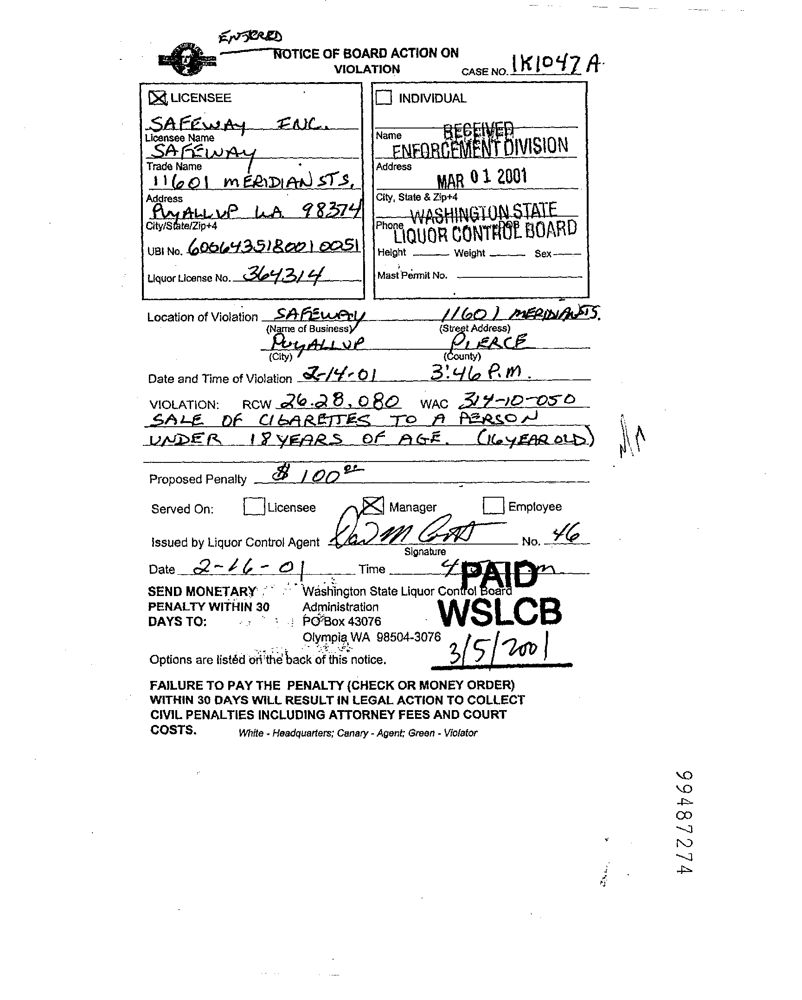 ENTERED
NOTICE OF BOARD ACTION ON
VIOLATION
CASE NO. 1K1047A
LICENSEE
SAFEWAY INC.
Licensee Name
SAFEWAY
Trade Name
11601 MERIDIAN ST S,
Address
PUYALLUP WA 98374
City/State/Zip+4
UBI No. 6006435180010051
Liquor License No. 364314
INDIVIDUAL
Name
RECEIVED
ENFORCEMENT DIVISION
Address
MAR 01 2001
City, State & Zip+4
WASHINGTON STATE
Phone
LIQUOR CONTROL BOARD
Height Weight Sex
Mast Permit No.
Location of Violation SAFEWAY 11601 MERIDIAN ST S.
(Name of Business) (Street Address)
PUYALLUP PIERCE
(City) (County)
Date and Time of Violation 2-14-01 3:46 P.M.
VIOLATION: RCW 26.28.080 WAC 314-10-050
SALE OF CIGARETTES TO A PERSON
UNDER 18 YEARS OF AGE. (16 YEAR OLD)
Proposed Penalty $100
Served On: Licensee Manager Employee
Issued by Liquor Control Agent No. 46
Signature
Date 2-16-01 Time
PAID
WSLCB
3/5/2001
SEND MONETARY
PENALTY WITHIN 30
DAYS TO:
Washington State Liquor Control Board
Administration
PO Box 43076
Olympia WA 98504-3076
Options are listed on the back of this notice.
FAILURE TO PAY THE PENALTY (CHECK OR MONEY ORDER)
WITHIN 30 DAYS WILL RESULT IN LEGAL ACTION TO COLLECT
CIVIL PENALTIES INCLUDING ATTORNEY FEES AND COURT
COSTS.
White - Headquarters; Canary - Agent; Green - Violator
99487274